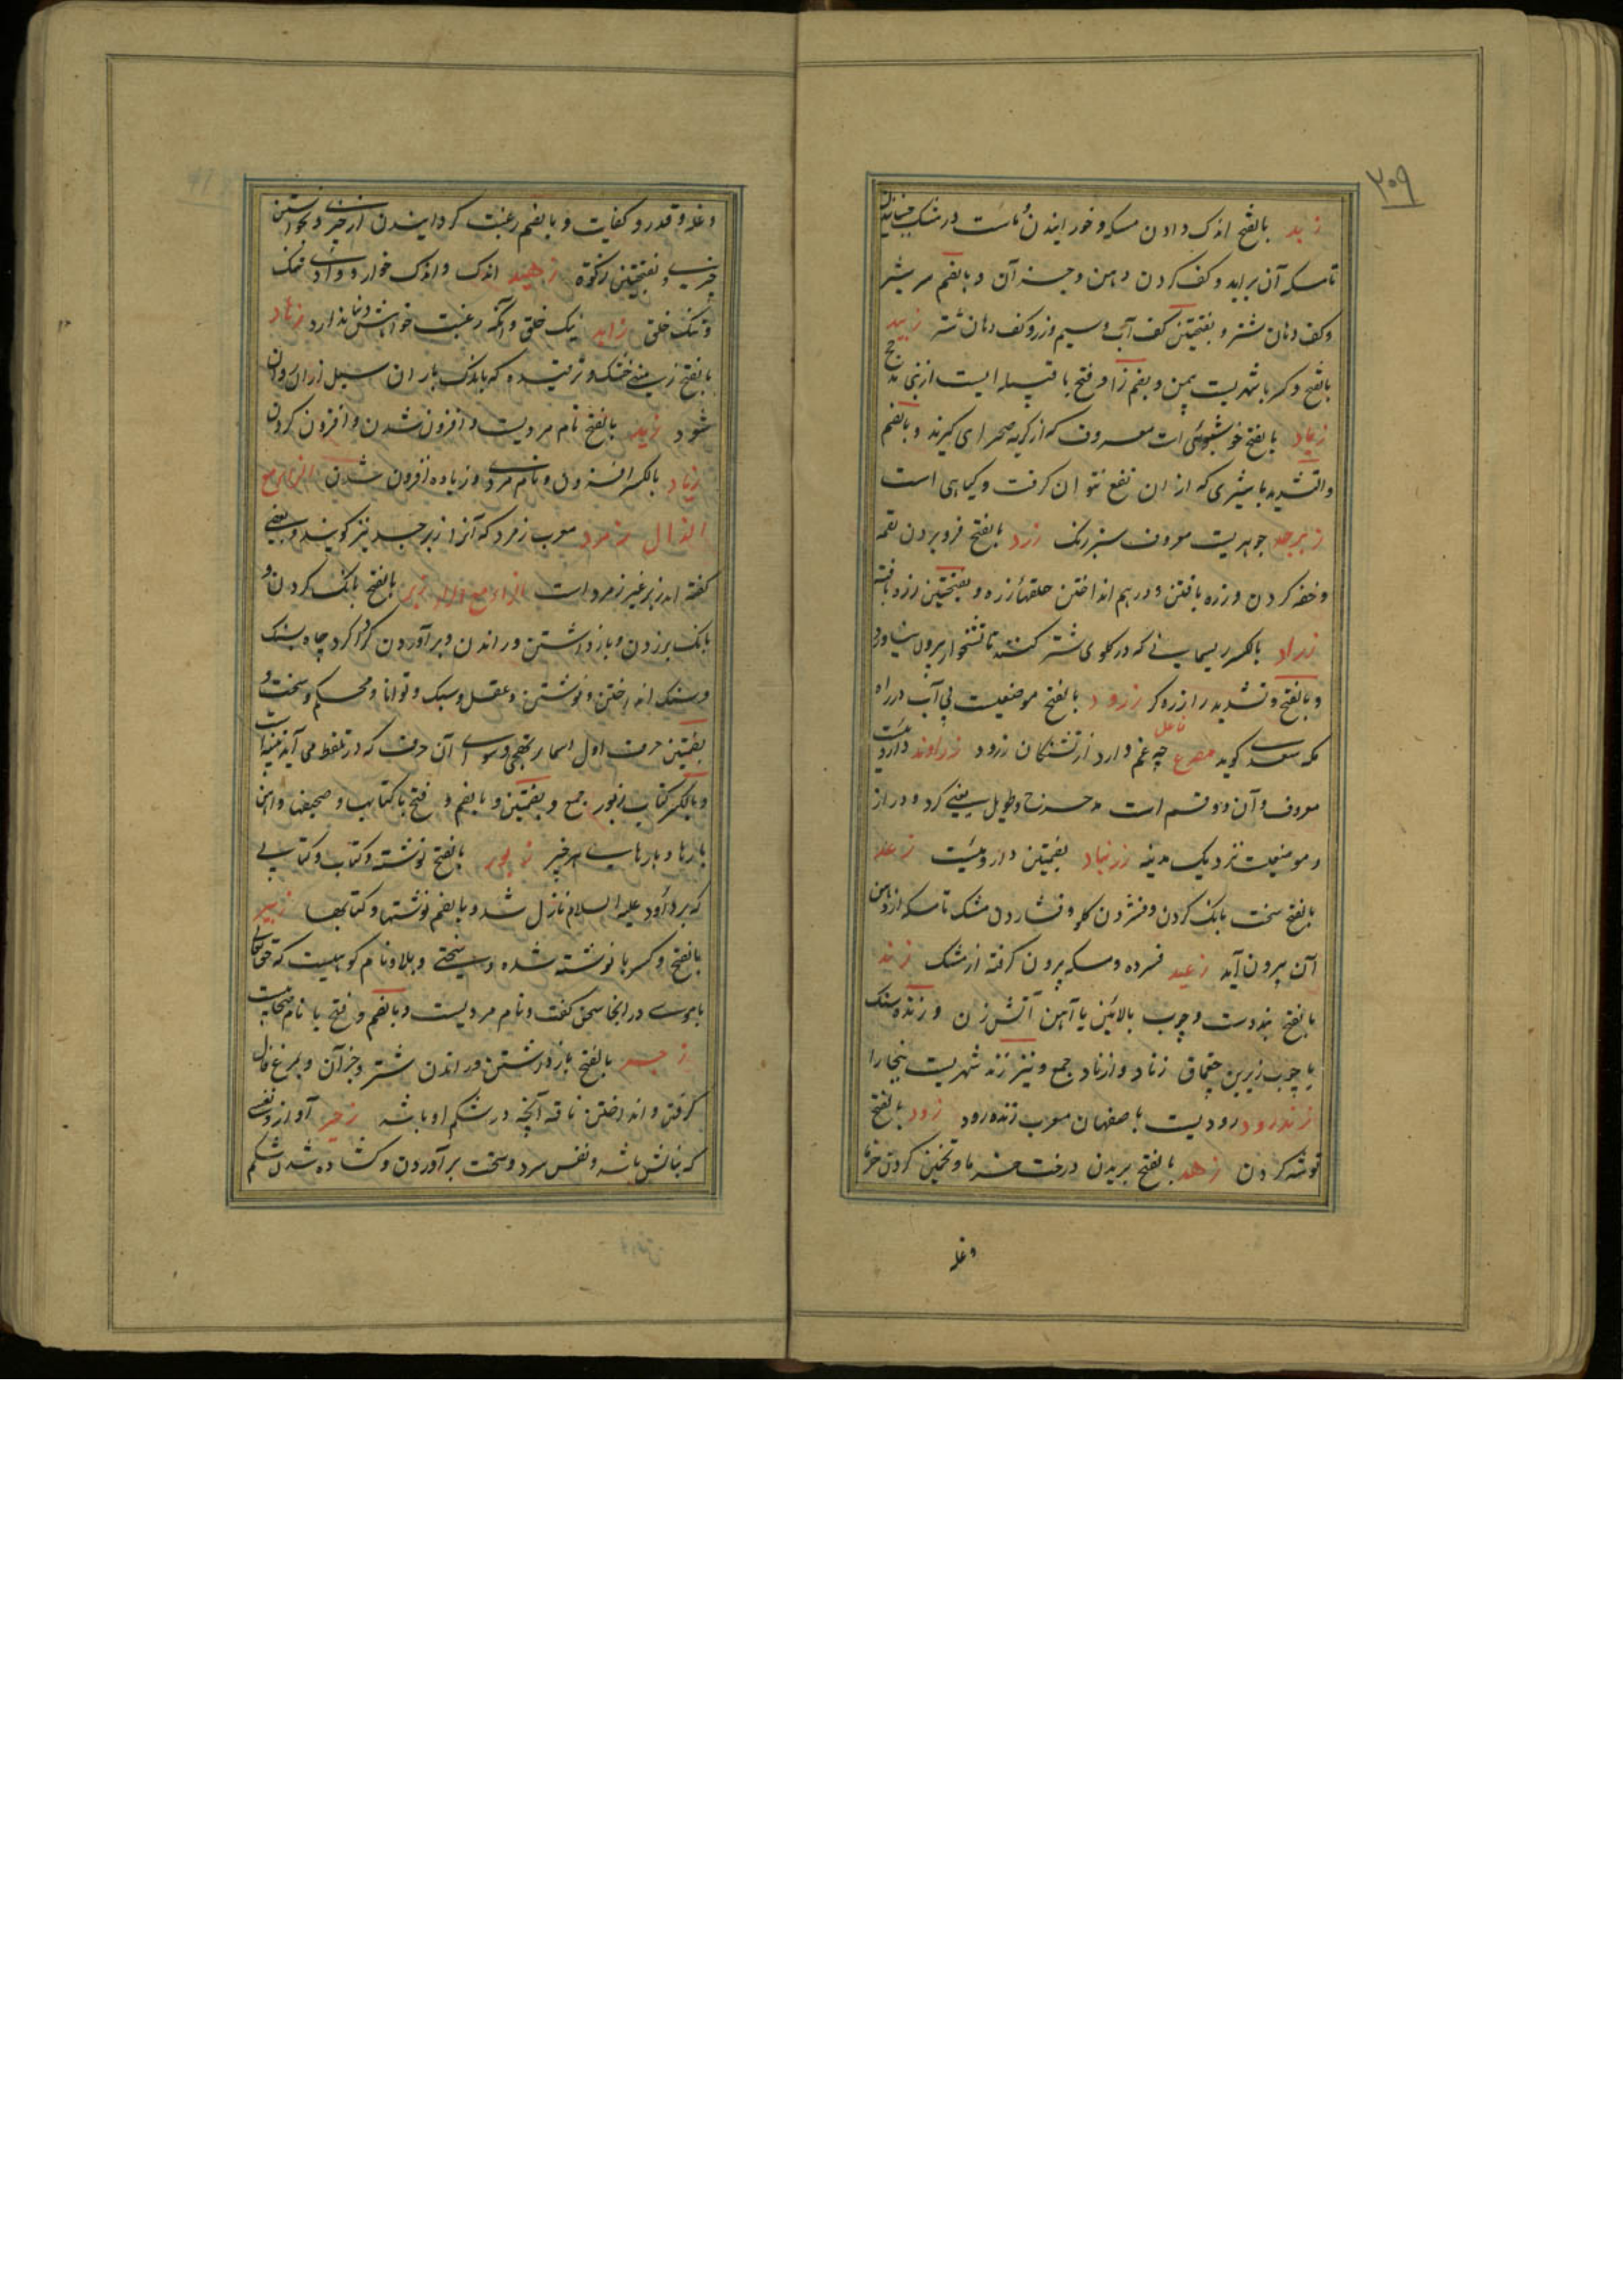 ۲۰۹
زبد بالفتح اندک دادن مسکه و خورانیدن و ماست در مشک جنبانیدن
تا مسکه آن براید و کف کردن دهن و جز آن و بالضم سر شیر
و کف دهان شتر و بفتحتین کف آب و سیم و زر و کف دهان شتر زبید
بالفتح و کسر با شهریست بیمن و بضم زا و فتح با قبیله ایست از بنی مذحج
زباد بالفتح خوشبوئی است معروف که از گربه صحرای گیرند و بالضم
والتشدید با شیری که از ان نفع نتوان گرفت و گیاهی است
زبرجد جوهریست معروف سبز رنگ زرد بالفتح فرو بردن لقمه
و خفه کردن و زره بافتن و درهم انداختن حلقهاء زره و بفتحتین زره بافته
زراد بالکسر ریسمانی که در گلوی شتر کنند تا نشخوار بیرون نیاورد
و بالفتح و تشدید را زره گر زرود بالفتح موضعیست بی آب در راه
مکه سعدی گوید مصرع چه غم دارد از تشنگان زرود زراوند داروئیست
معروف و آن دو قسم است مدحرج و طویل یعنی گرد و دراز
و موضعیست نزدیک مدینه زرنباد بضمتین داروئیست زغد
بالفتح سخت بانگ کردن و فشردن گلو و فشاردن مشک تا مسکه از دهن
آن بیرون آید زغید فسرده و مسکه بیرون گرفته از مشک زند
بالفتح بند دست و چوب بالائین یا آهن آتش زن و زنده سنگ
یا چوب زیرین چقماق زناد و ازناد جمع و نیز زند شهریست ببخارا
زندرود رودیست باصفهان معرب زنده رود زود بالفتح
توشه کردن زهد بالفتح بریدن درخت خرما و تخمین کردن خرما
وغله
وغله و قدر و کفایت و بالضم رغبت گردانیدن از چیزی و نخواستن
چیزی و بفتحتین زکوة زهید اندک و اندک خوار و وادی تنگ
و تنگ خلق زاهد نیک خلق و انکه رغبت و خواهش دنیا ندارد زهاد
بالفتح زمینی خشک و ترقیده که باندک باران سیل ازان روان
شود زید بالفتح نام مردیست و افزون شدن و افزون کردن
زیاد بالکسر افزون و نام مردی و زیاده افزون شدن الزاء مع
الذال زمرد معرب زمرد که آنرا زبرجد نیز گویند و بعضی
گفته اند زبرجد غیر زمرد است الزاء مع الراء زبر بالفتح بانگ کردن و
بانگ برزدن و بازداشتن و راندن و برآوردن گرداگرد چاه بسنگ
و سنگ انداختن و نوشتن و عقل و سبک و توانا و محکم و سخت و
بضمتین حرف اول اسماء تهجی و سوای آن حرف که در تلفظ می آید بینه است
و بالکسر کتاب زبور جمع و بضمتین و بالضم و فتح با کتابها و صحیفها و آهن
پارها و پارهای هر چیز زبور بالفتح نوشته و کتاب و کتابی
که بر داود علیه السلام نازل شد و بالضم نوشتها و کتابها زبیر
بالفتح و کسر با نوشته شده و سختی و بلا و نام کوهیست که حقتعالی
با موسی در انجا سخن گفت و نام مردیست و بالضم و فتح با نام صحابیست
زجر بالفتح بازداشتن و راندن شتر و جز آن و بمرغ فال
گرفتن و انداختن ناقه آنچه در شکم او باشد زحیر آواز و نفسی
که بنالش باشد و نفس سرد و سخت برآوردن و گشاده شدن شکم